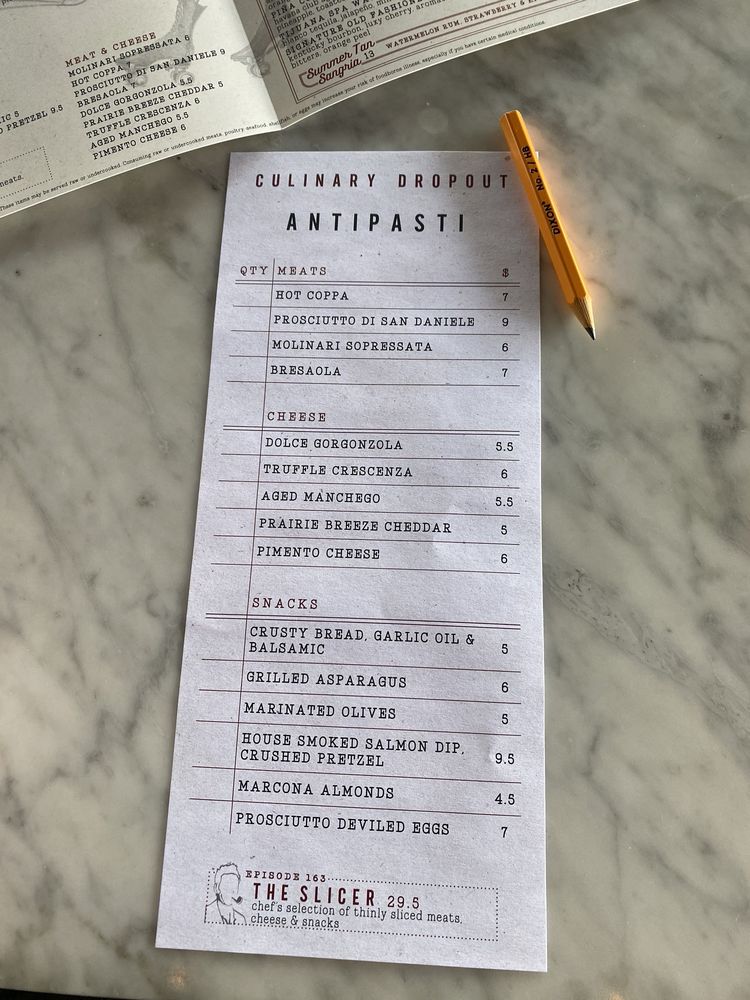 MEAT & CHEESE
MOLINARI SOPRESSATA 6
HOT COPPA 7
PROSCIUTTO DI SAN DANIELE 9
BRESAOLA 7
DOLCE GORGONZOLA 5.5
PRAIRIE BREEZE CHEDDAR 5
TRUFFLE CRESCENZA 6
AGED MANCHEGO 5.5
PIMENTO CHEESE 6
PRETZEL 9.5
meats.
These items may be served raw or undercooked. Consuming raw or undercooked meats, poultry, seafood, shellfish, or eggs may increase your risk of foodborne illness, especially if you have certain medical conditions.
SIGNATURE OLD FASHIONED
kentucky bourbon, luxy cherry, aromatic
bitters, orange peel
Summer Tan
Sangria 13
WATERMELON RUM, STRAWBERRY &
DIXON No. 2 / HB
CULINARY DROPOUT
ANTIPASTI
QTY MEATS $
HOT COPPA 7
PROSCIUTTO DI SAN DANIELE 9
MOLINARI SOPRESSATA 6
BRESAOLA 7
CHEESE
DOLCE GORGONZOLA 5.5
TRUFFLE CRESCENZA 6
AGED MANCHEGO 5.5
PRAIRIE BREEZE CHEDDAR 5
PIMENTO CHEESE 6
SNACKS
CRUSTY BREAD, GARLIC OIL &
BALSAMIC 5
GRILLED ASPARAGUS 6
MARINATED OLIVES 5
HOUSE SMOKED SALMON DIP,
CRUSHED PRETZEL 9.5
MARCONA ALMONDS 4.5
PROSCIUTTO DEVILED EGGS 7
EPISODE 163
THE SLICER 29.5
chef's selection of thinly sliced meats,
cheese & snacks